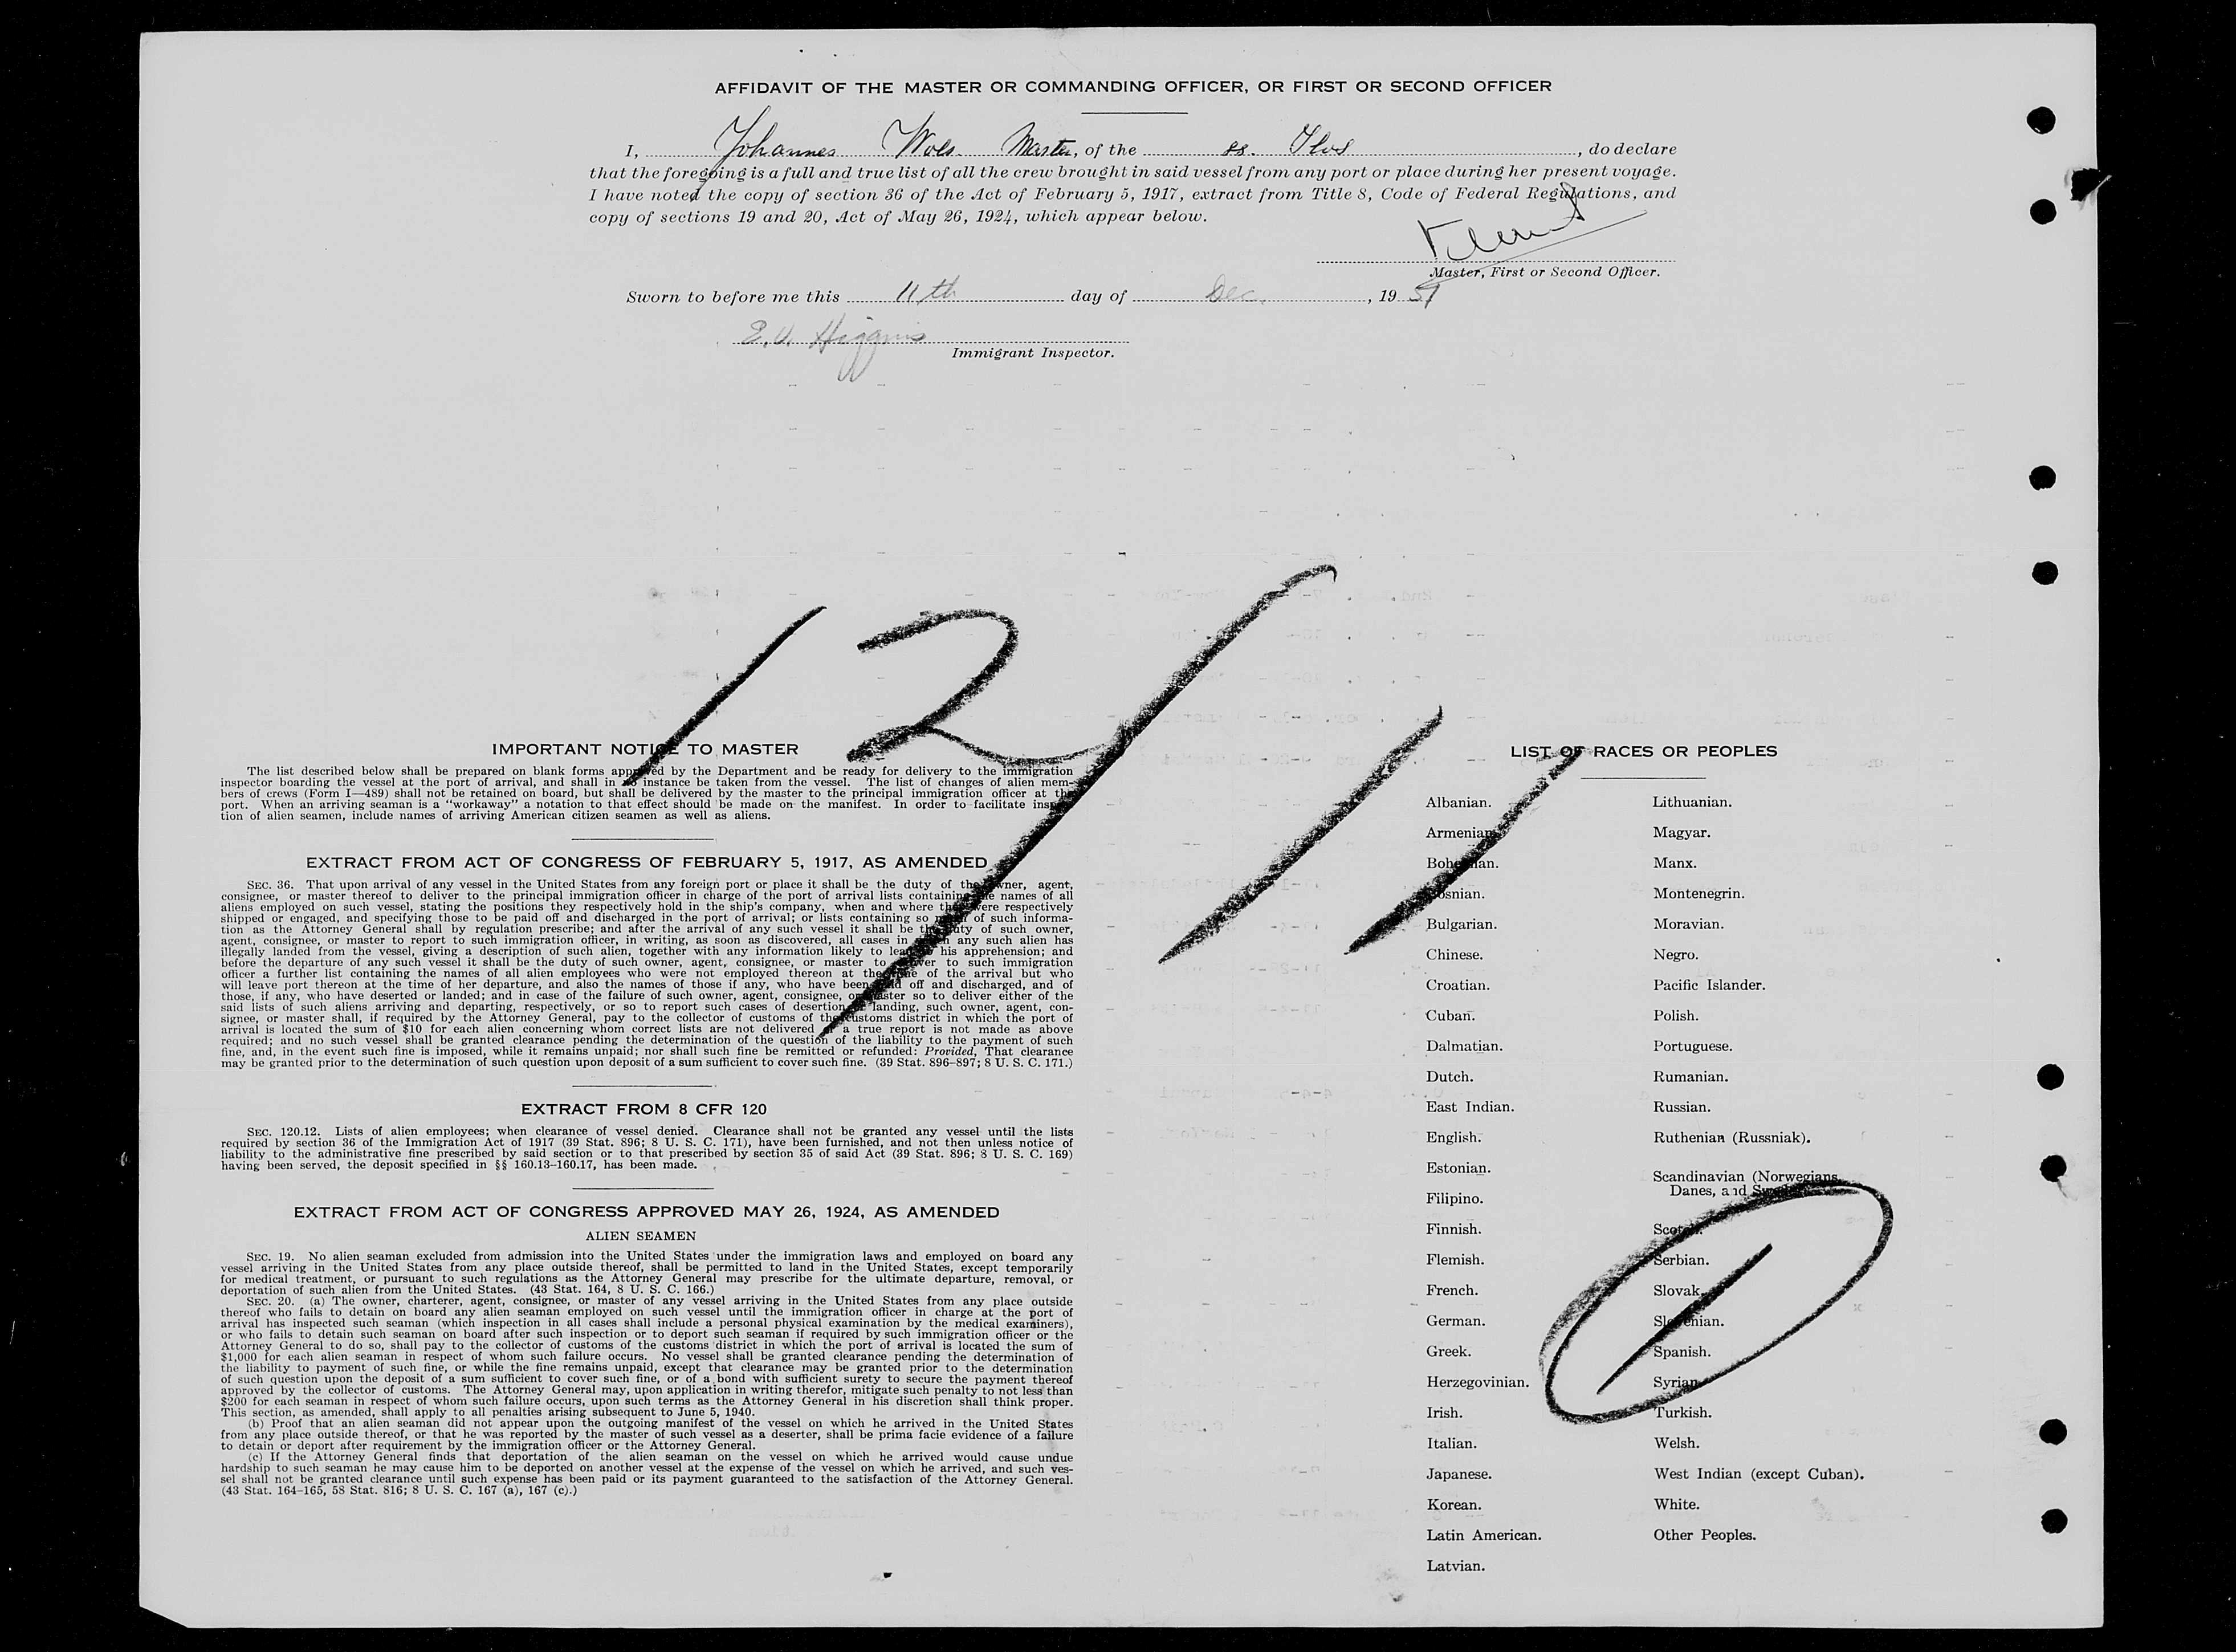 AFFIDAVIT OF THE MASTER OR COMMANDING OFFICER, OR FIRST OR SECOND OFFICER
I, Johannes Master, of the ss. , do declare
that the foregoing is a full and true list of all the crew brought in said vessel from any port or place during her present voyage.
I have noted the copy of section 36 of the Act of February 5, 1917, extract from Title 8, Code of Federal Regulations, and
copy of sections 19 and 20, Act of May 26, 1924, which appear below.
Master, First or Second Officer.
Sworn to before me this 11th day of Dec. , 19 51
Higgins
Immigrant Inspector.
12/11
IMPORTANT NOTICE TO MASTER
The list described below shall be prepared on blank forms approved by the Department and be ready for delivery to the immigration
inspector boarding the vessel at the port of arrival, and shall in no instance be taken from the vessel. The list of changes of alien mem-
bers of crews (Form I—489) shall not be retained on board, but shall be delivered by the master to the principal immigration officer at the
port. When an arriving seaman is a "workaway" a notation to that effect should be made on the manifest. In order to facilitate inspec-
tion of alien seamen, include names of arriving American citizen seamen as well as aliens.
EXTRACT FROM ACT OF CONGRESS OF FEBRUARY 5, 1917, AS AMENDED
SEC. 36. That upon arrival of any vessel in the United States from any foreign port or place it shall be the duty of the owner, agent,
consignee, or master thereof to deliver to the principal immigration officer in charge of the port of arrival lists containing the names of all
aliens employed on such vessel, stating the positions they respectively hold in the ship's company, when and where they were respectively
shipped or engaged, and specifying those to be paid off and discharged in the port of arrival; or lists containing so much of such informa-
tion as the Attorney General shall by regulation prescribe; and after the arrival of any such vessel it shall be the duty of such owner,
agent, consignee, or master to report to such immigration officer, in writing, as soon as discovered, all cases in which any such alien has
illegally landed from the vessel, giving a description of such alien, together with any information likely to lead to his apprehension; and
before the departure of any such vessel it shall be the duty of such owner, agent, consignee, or master to deliver to such immigration
officer a further list containing the names of all alien employees who were not employed thereon at the time of the arrival but who
will leave port thereon at the time of her departure, and also the names of those if any, who have been paid off and discharged, and of
those, if any, who have deserted or landed; and in case of the failure of such owner, agent, consignee, or master so to deliver either of the
said lists of such aliens arriving and departing, respectively, or so to report such cases of desertion or landing, such owner, agent, con-
signee, or master shall, if required by the Attorney General, pay to the collector of customs of the customs district in which the port of
arrival is located the sum of $10 for each alien concerning whom correct lists are not delivered or a true report is not made as above
required; and no such vessel shall be granted clearance pending the determination of the question of the liability to the payment of such
fine, and, in the event such fine is imposed, while it remains unpaid; nor shall such fine be remitted or refunded: Provided, That clearance
may be granted prior to the determination of such question upon deposit of a sum sufficient to cover such fine. (39 Stat. 896–897; 8 U. S. C. 171.)
EXTRACT FROM 8 CFR 120
SEC. 120.12. Lists of alien employees; when clearance of vessel denied. Clearance shall not be granted any vessel until the lists
required by section 36 of the Immigration Act of 1917 (39 Stat. 896; 8 U. S. C. 171), have been furnished, and not then unless notice of
liability to the administrative fine prescribed by said section or to that prescribed by section 35 of said Act (39 Stat. 896; 8 U. S. C. 169)
having been served, the deposit specified in §§ 160.13–160.17, has been made.
EXTRACT FROM ACT OF CONGRESS APPROVED MAY 26, 1924, AS AMENDED
ALIEN SEAMEN
SEC. 19. No alien seaman excluded from admission into the United States under the immigration laws and employed on board any
vessel arriving in the United States from any place outside thereof, shall be permitted to land in the United States, except temporarily
for medical treatment, or pursuant to such regulations as the Attorney General may prescribe for the ultimate departure, removal, or
deportation of such alien from the United States. (43 Stat. 164, 8 U. S. C. 166.)
SEC. 20. (a) The owner, charterer, agent, consignee, or master of any vessel arriving in the United States from any place outside
thereof who fails to detain on board any alien seaman employed on such vessel until the immigration officer in charge at the port of
arrival has inspected such seaman (which inspection in all cases shall include a personal physical examination by the medical examiners),
or who fails to detain such seaman on board after such inspection or to deport such seaman if required by such immigration officer or the
Attorney General to do so, shall pay to the collector of customs of the customs district in which the port of arrival is located the sum of
$1,000 for each alien seaman in respect of whom such failure occurs. No vessel shall be granted clearance pending the determination of
the liability to payment of such fine, or while the fine remains unpaid, except that clearance may be granted prior to the determination
of such question upon the deposit of a sum sufficient to cover such fine, or of a bond with sufficient surety to secure the payment thereof
approved by the collector of customs. The Attorney General may, upon application in writing therefor, mitigate such penalty to not less than
$200 for each seaman in respect of whom such failure occurs, upon such terms as the Attorney General in his discretion shall think proper.
This section, as amended, shall apply to all penalties arising subsequent to June 5, 1940.
(b) Proof that an alien seaman did not appear upon the outgoing manifest of the vessel on which he arrived in the United States
from any place outside thereof, or that he was reported by the master of such vessel as a deserter, shall be prima facie evidence of a failure
to detain or deport after requirement by the immigration officer or the Attorney General.
(c) If the Attorney General finds that deportation of the alien seaman on the vessel on which he arrived would cause undue
hardship to such seaman he may cause him to be deported on another vessel at the expense of the vessel on which he arrived, and such ves-
sel shall not be granted clearance until such expense has been paid or its payment guaranteed to the satisfaction of the Attorney General.
(43 Stat. 164–165, 58 Stat. 816; 8 U. S. C. 167 (a), 167 (c).)
LIST OF RACES OR PEOPLES
Albanian.
Armenian.
Bohemian.
Bosnian.
Bulgarian.
Chinese.
Croatian.
Cuban.
Dalmatian.
Dutch.
East Indian.
English.
Estonian.
Filipino.
Finnish.
Flemish.
French.
German.
Greek.
Herzegovinian.
Irish.
Italian.
Japanese.
Korean.
Latin American.
Latvian.
Lithuanian.
Magyar.
Manx.
Montenegrin.
Moravian.
Negro.
Pacific Islander.
Polish.
Portuguese.
Rumanian.
Russian.
Ruthenian (Russniak).
Scandinavian (Norwegians,
Danes, and Swedes).
Scotch.
Serbian.
Slovak.
Slovenian.
Spanish.
Syrian.
Turkish.
Welsh.
West Indian (except Cuban).
White.
Other Peoples.
1